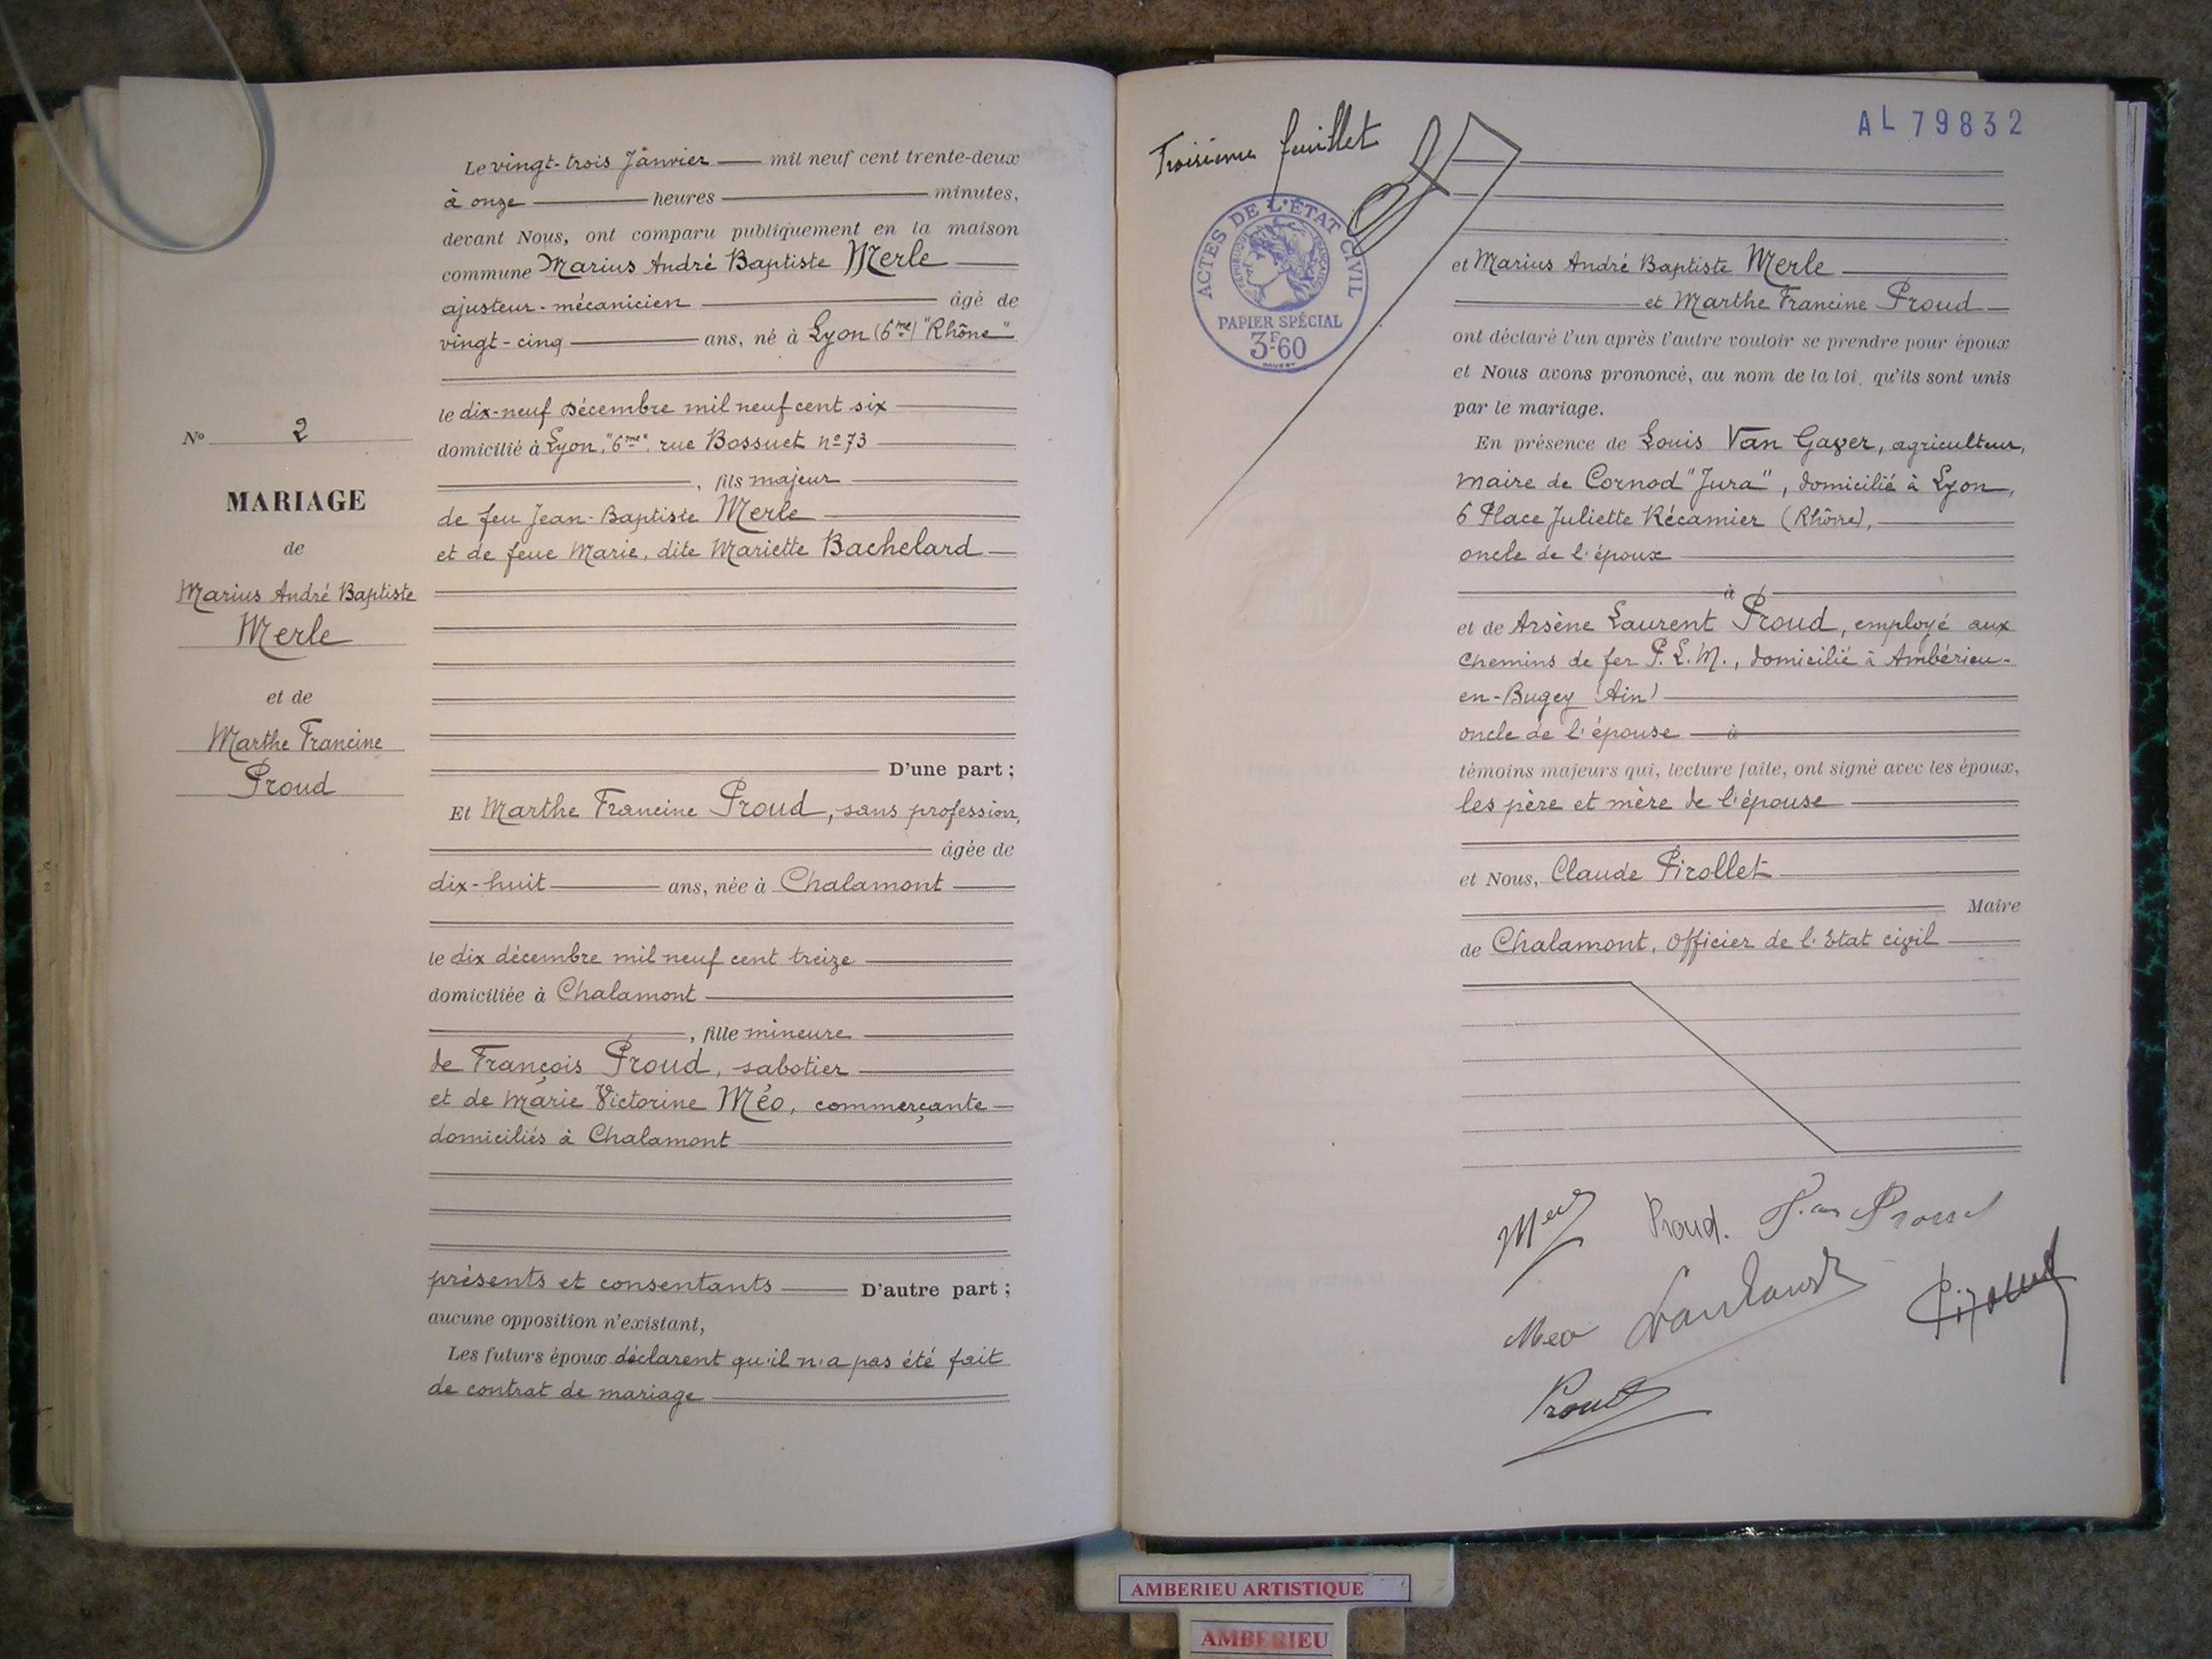 Le vingt-trois Janvier mil neuf cent trente-deux
à onze heures minutes,
devant Nous, ont comparu publiquement en la maison
commune Marius André Baptiste Merle
ajusteur-mécanicien âgé de
vingt-cinq ans, né à Lyon (6me) "Rhône"
le dix-neuf Décembre mil neuf cent six
domicilié à Lyon, "6me", rue Bossuet no 73
, fils majeur
de feu Jean-Baptiste Merle
et de feue Marie, dite Mariette Bachelard
No 2
MARIAGE
de
Marius André Baptiste
Merle
et de
Marthe Francine
Proud
D'une part ;
Et Marthe Francine Proud, sans profession,
âgée de
dix-huit ans, née à Chalamont
le dix décembre mil neuf cent treize
domiciliée à Chalamont
, fille mineure
de François Proud, sabotier
et de Marie Victorine Méo, commerçante
domiciliés à Chalamont
présents et consentants D'autre part ;
aucune opposition n'existant,
Les futurs époux déclarent qu'il n'a pas été fait
de contrat de mariage
Troisième feuillet
AL 79832
ACTES DE L'ÉTAT CIVIL
RÉPUBLIQUE FRANÇAISE
PAPIER SPÉCIAL
3F60
et Marius André Baptiste Merle
et Marthe Francine Proud
ont déclaré l'un après l'autre vouloir se prendre pour époux
et Nous avons prononcé, au nom de la loi, qu'ils sont unis
par le mariage.
En présence de Louis Van Gaver, agriculteur,
maire de Cornod "Jura", domicilié à Lyon,
6 Place Juliette Récamier (Rhône),
oncle de l'époux
à
et de Arsène Laurent Proud, employé aux
Chemins de fer P.L.M., domicilié à Ambérieu-
en-Bugey (Ain)
oncle de l'épouse à
témoins majeurs qui, lecture faite, ont signé avec les époux,
les père et mère de l'épouse
et Nous, Claude Pirollet
Maire
de Chalamont, Officier de l'Etat civil
Proud.
Proud
Meo
Proud
AMBERIEU ARTISTIQUE
AMBERIEU